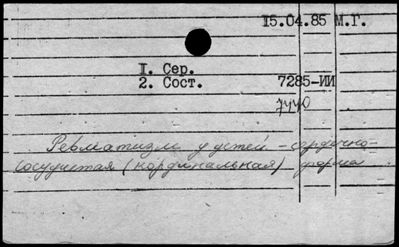 15.04.85 М.Г.
I. Сер.
2. Сост. 7285-ИИ
7440
Ревматизм у детей - сердечно-
сосудистая (кординальная) форма